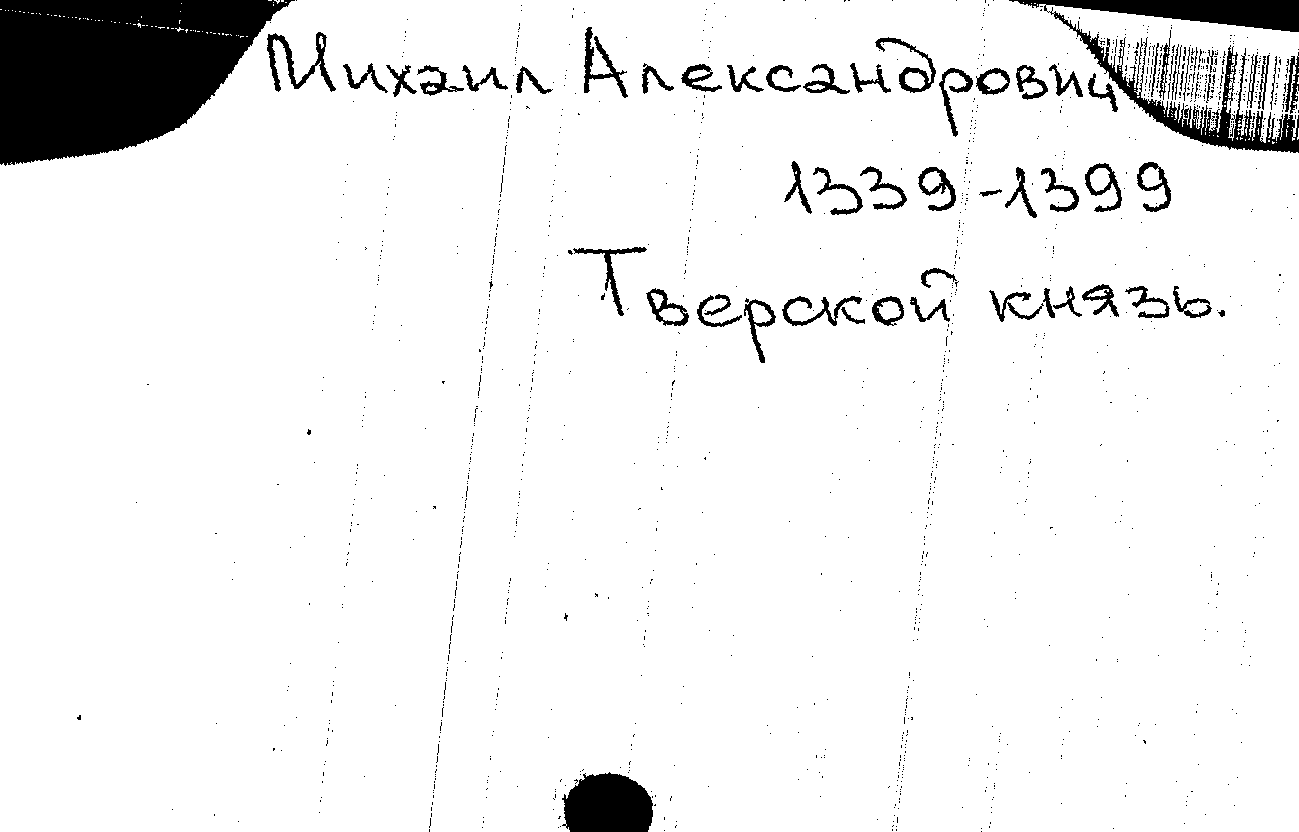 Михаил Александрович
1339-1399
Тверской князь.